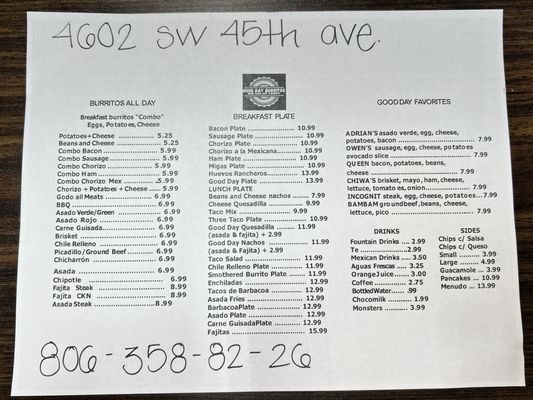 4602 SW 45th ave.
GOOD DAY BURRITOS
BURRITOS ALL DAY
Breakfast burritos "Combo"
Eggs, Potatoes, Cheese
Potatoes+Cheese ............... 5.25
Beans and Cheese ............... 5.25
Combo Bacon ............... 5.99
Combo Sausage ............... 5.99
Combo Chorizo ............... 5.99
Combo Ham ............... 5.99
Combo Chorizo Mex ............... 5.99
Chorizo + Potatoes + Cheese ..... 5.99
Godo all Meats ............... 6.99
BBQ ............... 6.99
Asado Verde/Green ............... 6.99
Asado Rojo ............... 6.99
Carne Guisada ............... 6.99
Brisket ............... 6.99
Chile Relleno ............... 6.99
Picadillo/Ground Beef ............... 6.99
Chicharrón ............... 6.99
Asada ............... 6.99
Chipotle ............... 6.99
Fajita Steak ............... 8.99
Fajita CKN ............... 8.99
Asada Steak ............... 8.99
BREAKFAST PLATE
Bacon Plate ............... 10.99
Sausage Plate ............... 10.99
Chorizo Plate ............... 10.99
Chorizo a la Mexicana ............... 10.99
Ham Plate ............... 10.99
Migas Plate ............... 10.99
Huevos Rancheros ............... 13.99
Good Day Plate ............... 13.99
LUNCH PLATE
Beans and Cheese nachos ....... 7.99
Cheese Quesadilla ............... 9.99
Taco Mix ............... 9.99
Three Taco Plate ............... 10.99
Good Day Quesadilla ....... 11.99
(asada & fajita) + 2.99
Good Day Nachos ............... 11.99
(asada & fajita) + 2.99
Taco Salad ............... 11.99
Chile Relleno Plate ............... 11.99
Smothered Burrito Plate ....... 11.99
Enchiladas ............... 12.99
Tacos de Barbacoa ............... 12.99
Asada Fries ............... 12.99
BarbacoaPlate ............... 12.99
Asado Plate ............... 12.99
Carne GuisadaPlate ............... 12.99
Fajitas ............... 15.99
GOOD DAY FAVORITES
ADRIAN'S asado verde, egg, cheese,
potatoes, bacon ............... 7.99
OWEN'S sausage, egg, cheese, potatoes
avocado slice ............... 7.99
QUEEN bacon, potatoes, beans,
cheese ............... 7.99
CHIWA'S brisket, mayo, ham, cheese,
lettuce, tomatoes, onion ............... 7.99
INCOGNIT steak, egg, cheese, potatoes...7.99
BAMBAM groundbeef,beans, cheese,
lettuce, pico ............... 7.99
DRINKS
Fountain Drinks .... 2.99
Te ............... 2.99
Mexican Drinks .... 3.50
Aguas Frescas ..... 3.25
OrangeJuice ..... 3.00
Coffee ............... 2.75
BottledWater...... .99
Chocomilk .......... 1.99
Monsters .......... 3.99
SIDES
Chips c/ Salsa
Chips c/ Queso
Small ............... 3.99
Large ............... 4.99
Guacamole ... 3.99
Pancakes ..... 10.99
Menudo ....... 13.99
806-358-82-26